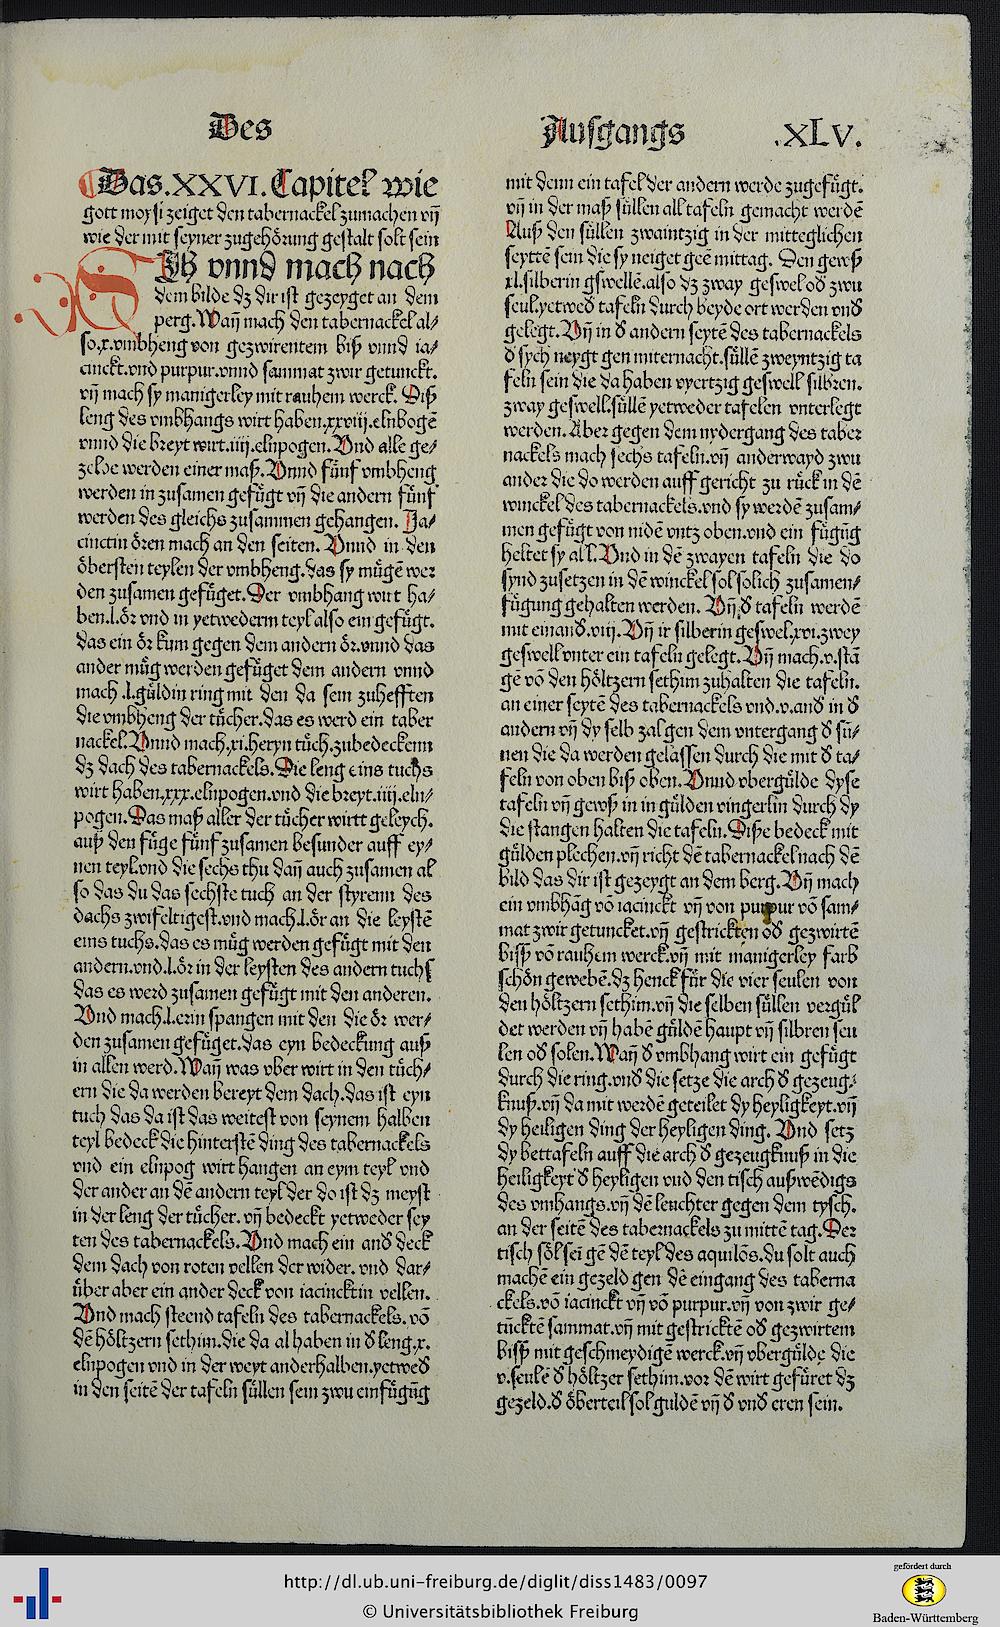 Des
Ausgangs
.XLV.
Das.XXVI.Capitel wie
gott moysi zeiget den tabernackel zumachen vñ
wie der mit seyner zugehörung gestalt solt sein
SIh vnnd mach nach
dem bilde dz dir ist gezeyget an dem
perg.Wañ mach den tabernackel al⸗
so.x.vmbheng von gezwirentem biß vnnd ia⸗
cinckt.vnd purpur.vnnd sammat zwir getunckt.
vñ mach sy manigerley mit rauhem werck. Diß
leng des vmbhangs wirt haben.xxviij.elnbogē
vnnd die breyt wirt.iiij.elnpogen.Vnd alle ge⸗
zelde werden einer maß.Vnnd fünf vmbheng
werden in zusamen gefügt vñ die andern fünf
werden des gleichs zusammen gehangen. Ja⸗
cinctin ören mach an den seiten. Vnnd in den
öbersten teylen der vmbheng.das sy mügē wer
den zusamen gefüget.Der vmbhang wirt ha⸗
ben.l.ör vnd in yetwederm teyl also ein gefügt.
das ein ör kum gegen dem andern ör.vnnd das
ander müg werden gefüget dem andern vnnd
mach .l.güldin ring mit den da sein zuhefften
die vmbheng der tücher.das es werd ein taber
nackel.Vnnd mach.xi.heryn tüch.zubedeckenn
dz dach des tabernackels.Die leng eins tuchs
wirt haben.xxx.elnpogen.vnd die breyt.iiij.eln⸗
pogen.Das maß aller der tücher wirtt geleych.
auß den füge fünf zusamen besunder auff ey⸗
nen teyl.vnd die sechs thu dañ auch zusamen al
so das du das sechste tuch an der styrenn des
dachs zwifeltigest.vnd mach.l.ör an die leystē
eins tuchs.das es müg werden gefügt mit den
andern.vnd.l.ör in der leysten des andern tuchs
das es werd zusamen gefügt mit den anderen.
Vnd mach.l.erin spangen mit den die ör wer⸗
den zusamen gefüget.das eyn bedeckung auß
in allen werd.Wañ was vber wirt in den tüch⸗
ern die da werden bereyt dem dach.das ist eyn
tuch das da ist das weitest von seynem halben
teyl bedeck die hinterstē ding des tabernackels
vnd ein elnpog wirt hangen an eym teyl vnd
der ander an dē andern teyl der do ist dz meyst
in der leng der tücher. vñ bedeckt yetweder sey
ten des tabernackels.Vnd mach ein and̄ deck
dem dach von roten vellen der wider. vnd dar⸗
über aber ein ander deck von iacincktin vellen.
Vnd mach steend tafeln des tabernackels. vō
dē höltzern sethim.die da al haben in d̄ leng.x.
elnpogen vnd in der weyt anderhalben.yetwed̄
in den seitē der tafeln süllen sein zwu einfügūg
mit denn ein tafel der andern werde zugefügt.
vñ in der maß süllen all tafeln gemacht werdē
Auß den süllen zwaintzig in der mitteglichen
seyttē sein die sy neiget geē mittag. Den gewß
xl.silberin gswellē.also dz zway geswel od̄ zwu
seul.yetwed̄ tafeln durch beyde ort werden vnd̄
gelegt.Vñ in d̄ andern seytē des tabernackels
d̄ sych neygt gen miternacht.süllē zweyntzig ta
feln sein die da haben vyertzig geswell silbren.
zway geswell.süllē yetweder tafelen vnterlegt
werden.Aber gegen dem nydergang des taber
nackels mach sechs tafeln.vñ anderwayd zwu
ander die do werden auff gericht zu rück in dē
winckel des tabernackels.vnd sy werdē zusam⸗
men gefügt von nidē vntz oben.vnd ein fügūg
heltet sy all.Vnd in dē zwayen tafeln die do
synd zusetzen in dē winckel sol solich zusamen⸗
fügung gehalten werden. Vñ.d̄ tafeln werdē
mit einand̄.viij.Vñ ir silberin geswel.xvi.zwey
geswell vnter ein tafeln gelegt.Vñ mach.v.stā
gē vō den höltzern sethim zuhalten die tafeln.
an einer seytē des tabernackels vnd.v.and̄ in d̄
andern vñ dy selb zal gen dem vntergang d̄ sü⸗
nen die da werden gelassen durch die mit d̄ ta⸗
feln von oben biß oben.Vnnd vbergülde dyse
tafeln vñ gewß in in gülden vingerlin durch dy
die stangen halten die tafeln.Diße bedeck mit
gülden plechen.vñ richt dē tabernackel nach dē
bild das dir ist gezeygt an dem berg.Vñ mach
ein vmbhāg vō iacinckt vñ von purpur vō sam⸗
mat zwir getuncket.vñ gestrickten od̄ gezwirtē
bisß vō rauhem werck.vñ mit manigerley farb
schön gewebē.dz henck für die vier seulen von
den höltzern sethim.vñ die selben süllen vergül
det werden vñ habē güldē haupt vñ silbren seu
len od̄ solen.Wañ d̄ vmbhang wirt ein gefügt
durch die ring.vnd̄ die setze die arch d̄ gezeug⸗
knuß.vñ da mit werdē geteilet dy heyligkeyt.vñ
dy heiligen ding der heyligen ding. Vnd setz
dy bettafeln auff die arch d̄ gezeugknuß in die
heiligkeyt d̄ heyligen vnd den tisch außwēdigs
des vmhangs.vñ dē leuchter gegen dem tysch.
an der seitē des tabernackels zu mittē tag.Der
tisch söl sei gē dē teyl des aquilōs.du solt auch
machē ein gezeld gen dē eingang des taberna
ckels.vō iacinckt vñ vō purpur.vñ von zwir ge⸗
tücktē sammat.vñ mit gestricktē od̄ gezwirtem
bisß mit geschmeydigē werck.vñ vbergülde die
v.seulē d̄ höltzer sethim.vor dē wirt gefüret dz
gezeld.d̄ öberteil sol guldē vñ d̄ vnd̄ eren sein.
http://dl.ub.uni-freiburg.de/diglit/diss1483/0097
© Universitätsbibliothek Freiburg
gefördert durch
Baden-Württemberg